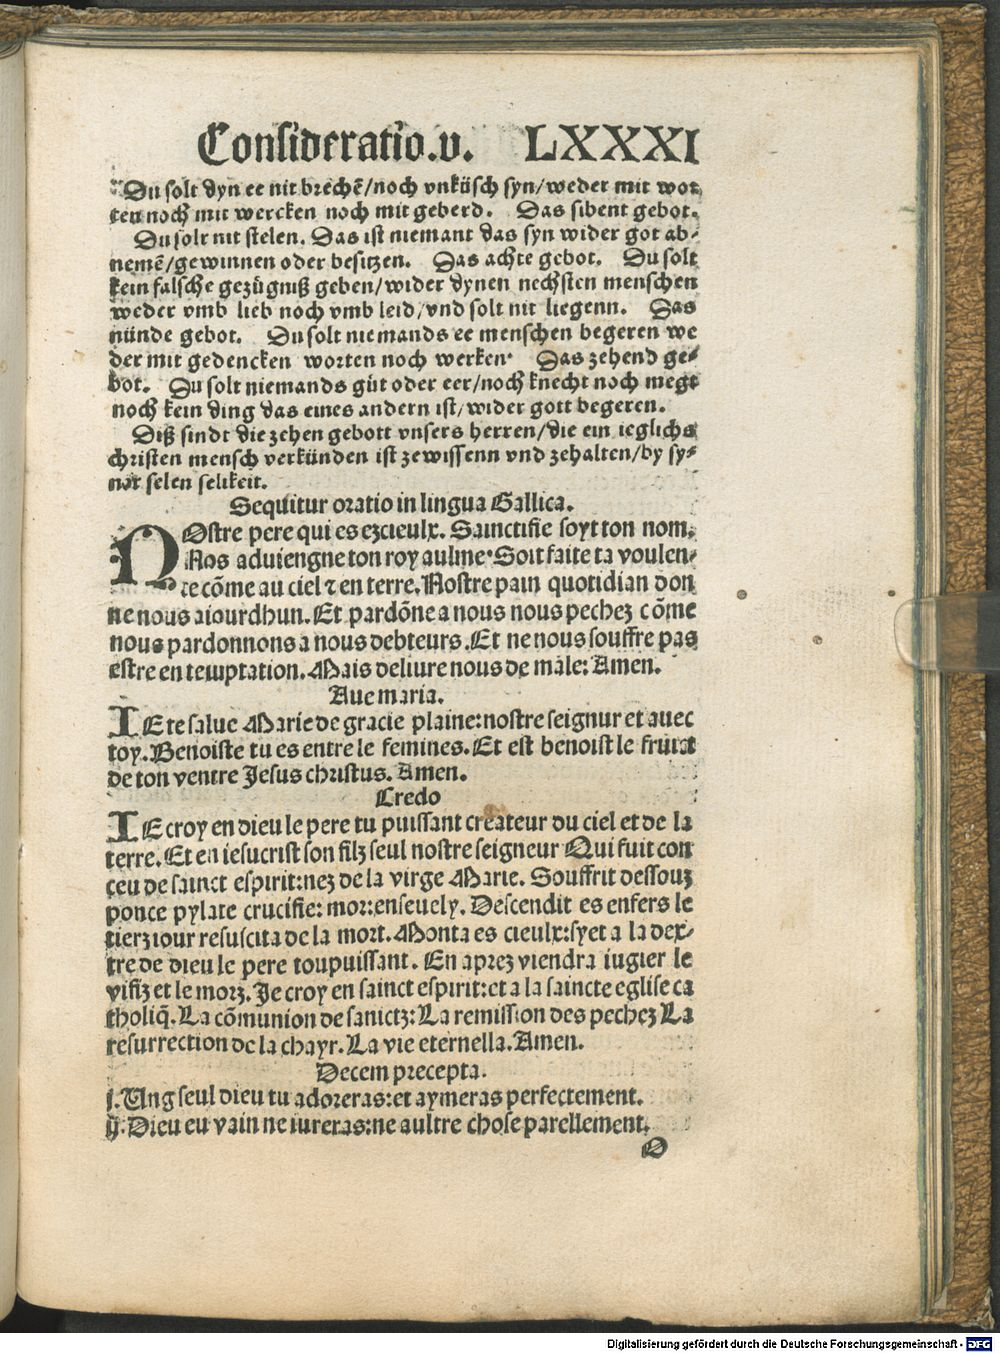 Consideratio.v. LXXXI
Du solt dyn ee nit brechē/noch vnküsch syn/weder mit wor
ten noch mit wercken noch mit geberd. Das sibent gebot.
Du solt nit stelen. Das ist niemant das syn wider got ab-
nemē/gewinnen oder besitzen. Das achte gebot. Du solt
kein falsche gezügniß geben/wider dynen nechsten menschen
weder vmb lieb noch vmb leid/vnd solt nit liegenn. Das
nünde gebot. Du solt niemands ee menschen begeren we
der mit gedencken worten noch werken. Das zehend ge-
bot. Du solt niemands güt oder eer/noch knecht noch megt
noch kein ding das eines andern ist/wider gott begeren.
Diß sindt die zehen gebott vnsers herren/die ein ieglichs
christen mensch verkünden ist zewissenn vnd zehalten/by sy-
ner selen selikeit.
Sequitur oratio in lingua Gallica.
NOstre pere qui es ezcieulx. Sainctifie soyt ton nom.
Nos aduiengne ton royaulme. Soit faite ta voulen-
te cōme au ciel ⁊ en terre. Nostre pain quotidian don
ne nous aiourdhun. Et pardōne a nous nous pechez cōme
nous pardonnons a nous debteurs. Et ne nous souffre pas
estre en temptation. Mais deliure nous de male: Amen.
Aue maria.
IE te salue Marie de gracie plaine: nostre seignur et auec
toy. Benoiste tu es entre le femines. Et est benoist le fruict
de ton ventre Jesus christus. Amen.
Credo
IE croy en dieu le pere tu puissant createur du ciel et de la
terre. Et en iesucrist son filz seul nostre seigneur Qui fuit con
ceu de sainct espirit: nez de la virge Marie. Souffrit dessouz
ponce pylate crucifie: mor: enseuely. Descendit es enfers le
tierz iour resuscita de la mort. Monta es cieulx: syet a la dex-
tre de dieu le pere toupuissant. En aprez viendra iugier le
vifiz et le morz. Je croy en sainct espirit: et a la saincte eglise ca
tholiq̄. La cōmunion de sanictz: La remission des pechez La
resurrection de la chayr. La vie eternella. Amen.
Decem precepta.
j. Ung seul dieu tu adoreras: et aymeras perfectement.
ij. Dieu eu vain ne iureras: ne aultre chose parellement.
O
Digitalisierung gefördert durch die Deutsche Forschungsgemeinschaft - DFG